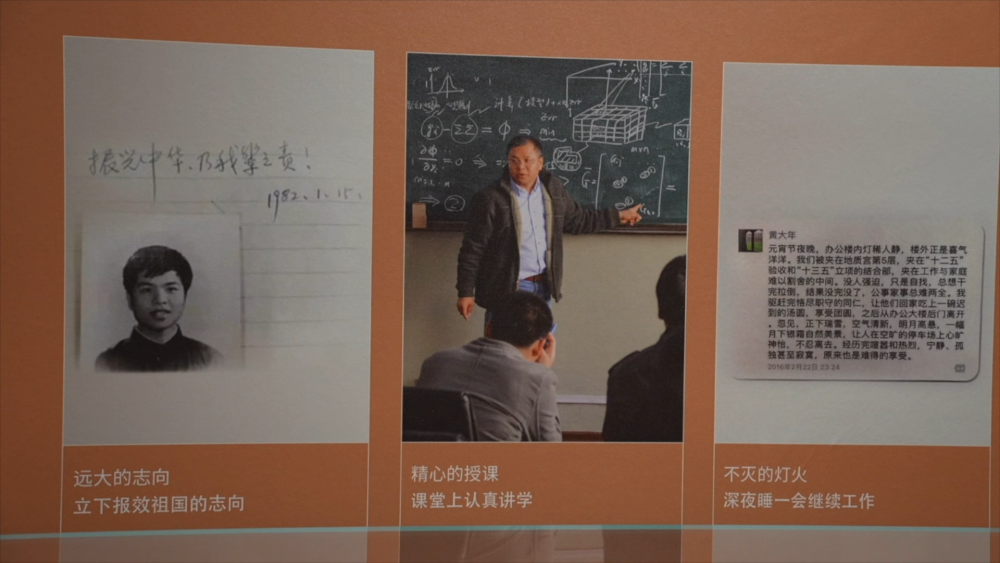 振兴中华、乃我辈之责!
1982.1.15.
远大的志向
立下报效祖国的志向
计算
= Φ ⇒
= 0 ⇒
精心的授课
课堂上认真讲学
黄大年
元宵节夜晚，办公楼内灯稀人静，楼外正是喜气
洋洋。我们被夹在地质宫第5层，夹在“十二五”
验收和“十三五”立项的结合部，夹在工作与家庭
难以割舍的中间。没人强迫，只是自找，总想干
完拉倒，结果没完没了，公事家事总难两全。我
驱赶完恪尽职守的同仁，让他们回家吃上一碗迟
到的汤圆，享受团圆，之后从办公大楼后门离开
。忽见，正下瑞雪，空气清新，明月高悬，一幅
月下银霜自然美景，让人在空旷的停车场上心旷
神怡，不忍离去。经历完喧嚣和热烈，宁静、孤
独甚至寂寞，原来也是难得的享受。
2016年2月22日 23:24
不灭的灯火
深夜睡一会继续工作